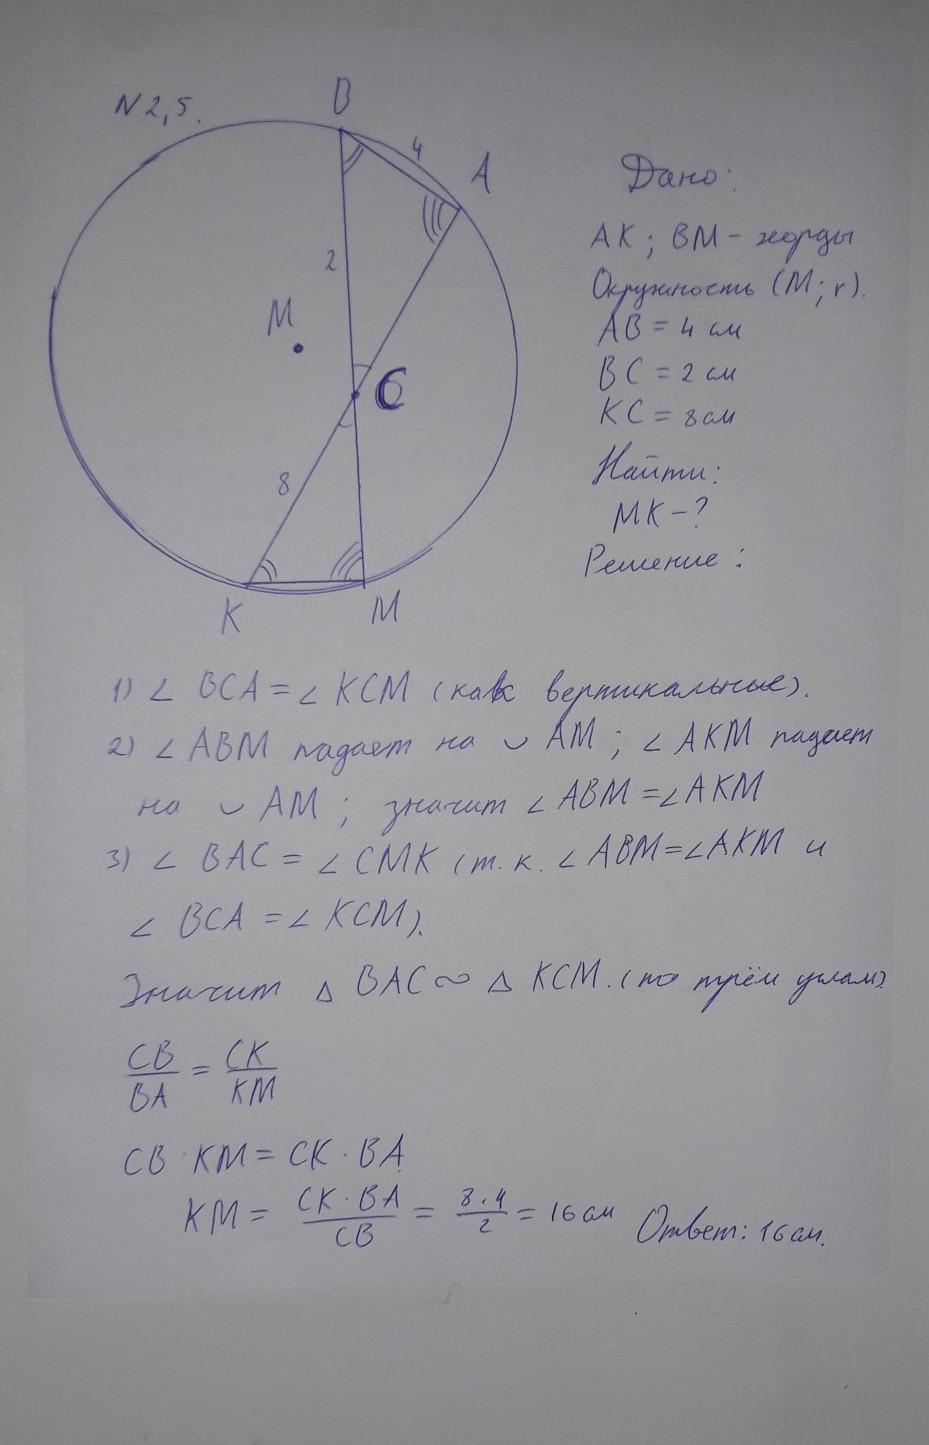 N 2,5.
B
4
A
2
M
C
8
K
M
Дано:
AK; BM - хорды
Окружность (M; r).
AB = 4 см
BC = 2 см
KC = 8 см
Найти:
MK - ?
Решение:
1) ∠ BCA = ∠ KCM (как вертикальные).
2) ∠ ABM падает на ◡ AM; ∠ AKM падает
на ◡ AM; значит ∠ ABM = ∠ AKM
3) ∠ BAC = ∠ CMK (т.к. ∠ ABM = ∠ AKM и
∠ BCA = ∠ KCM).
Значит △ BAC ∾ △ KCM. (по трём углам).
CB/BA = CK/KM
CB · KM = CK · BA
KM = CK · BA/CB = 8·4/2 = 16 см Ответ: 16 см.